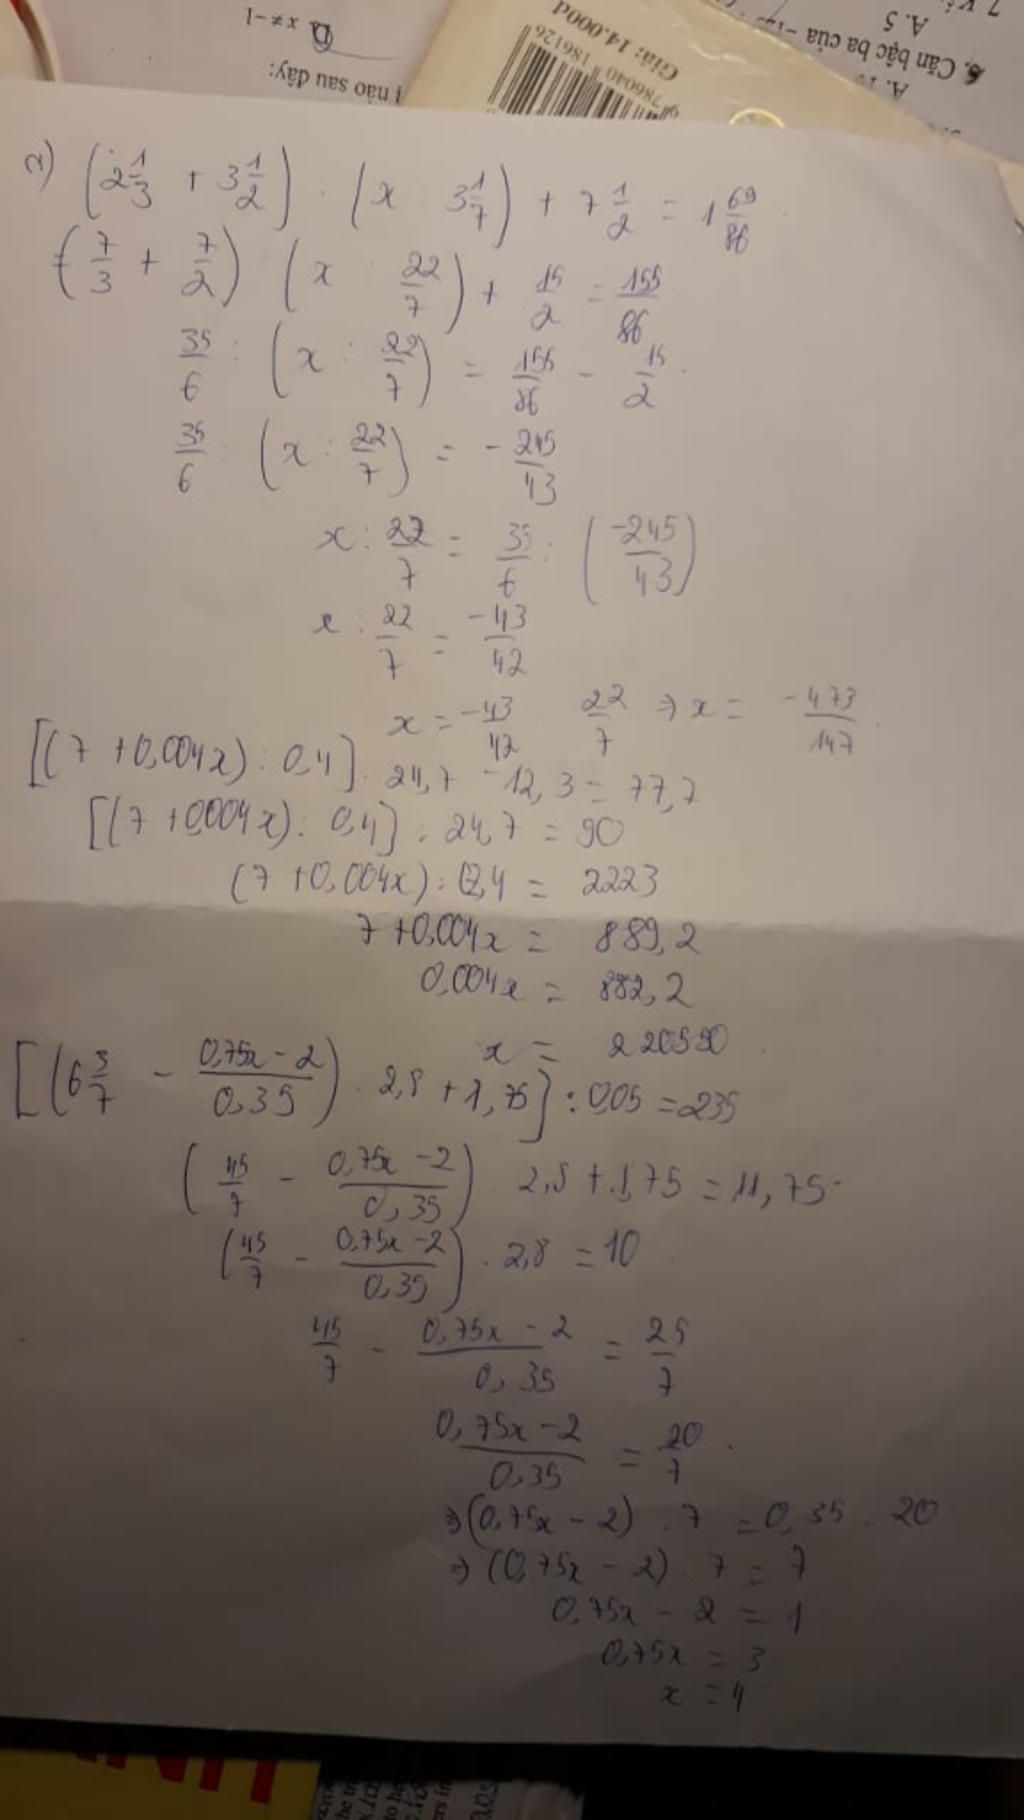 D. x ≠ -1
ị nào sau đây:
9 786040 186126
Giá: 14.000đ
6. Căn bậc ba của -125
A. 5
a) (2 1/3 + 3 1/2) : (x 3 1/7) + 7 1/2 = 1 69/86
(7/3 + 7/2) (x : 22/7) + 15/2 = 155/86
35/6 : (x : 22/7) = 155/86 - 15/2
35/6 : (x : 22/7) = - 245/43
x : 22/7 = 35/6 : (-245/43)
x : 22/7 = -43/42
x = -43/42 . 22/7 ⇒ x = -473/147
[(7 + 0,004x) : 0,4] . 24,7 - 12,3 = 77,7
[(7 + 0,004x) : 0,4] : 24,7 = 90
(7 + 0,004x) : 0,4 = 2223
7 + 0,004x = 889,2
0,004x = 882,2
x = 220550
[(6 3/7 - (0,75x - 2)/0,35) . 2,8 + 1,75] : 0,05 = 235
(45/7 - (0,75x - 2)/0,35) . 2,8 + 1,75 = 11,75
(45/7 - (0,75x - 2)/0,35) . 2,8 = 10
45/7 - (0,75x - 2)/0,35 = 25/7
(0,75x - 2)/0,35 = 20/7
⇒ (0,75x - 2) . 7 = 0,35 . 20
⇒ (0,75x - 2) . 7 = 7
0,75x - 2 = 1
0,75x = 3
x = 4